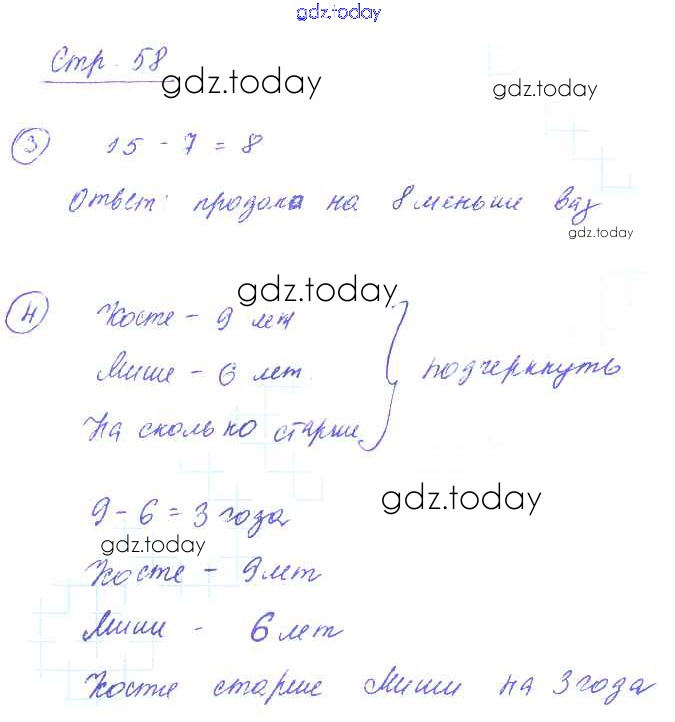 gdz.today
Стр. 58
gdz.today
gdz.today
3 15 - 7 = 8
Ответ: продола на 8 меньше ваз
gdz.today
gdz.today
4 Косте - 9 лет
Мише - 6 лет. подчеркнуть
На сколько старше
gdz.today
9 - 6 = 3 года
gdz.today
Косте - 9 лет
Миши - 6 лет
Косте старше Миши на 3 года